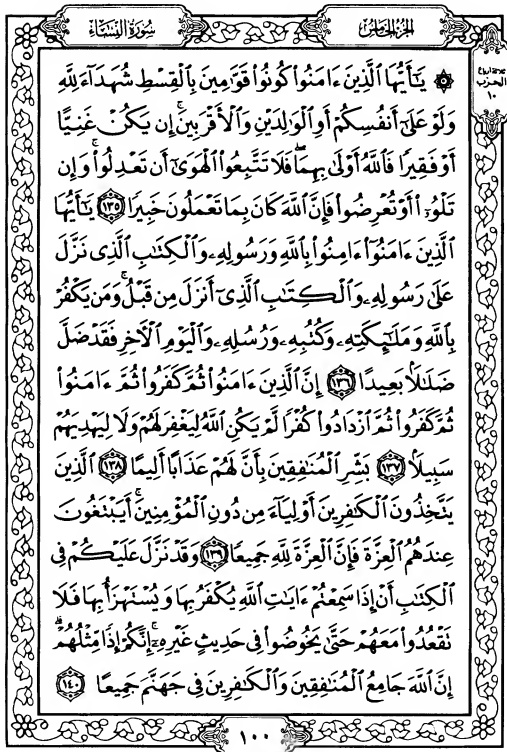 سُورَةُ النِّسَاءِ
الجُزْءُ الخَامِسُ
ثلاثة أرباع
الحزب
١٠
۞ يَٰٓأَيُّهَا ٱلَّذِينَ ءَامَنُوا۟ كُونُوا۟ قَوَّٰمِينَ بِٱلْقِسْطِ شُهَدَآءَ لِلَّهِ
وَلَوْ عَلَىٰٓ أَنفُسِكُمْ أَوِ ٱلْوَٰلِدَيْنِ وَٱلْأَقْرَبِينَ ۚ إِن يَكُنْ غَنِيًّا
أَوْ فَقِيرًا فَٱللَّهُ أَوْلَىٰ بِهِمَا ۖ فَلَا تَتَّبِعُوا۟ ٱلْهَوَىٰٓ أَن تَعْدِلُوا۟ ۚ وَإِن
تَلْوُۥٓا۟ أَوْ تُعْرِضُوا۟ فَإِنَّ ٱللَّهَ كَانَ بِمَا تَعْمَلُونَ خَبِيرًا ١٣٥ يَٰٓأَيُّهَا
ٱلَّذِينَ ءَامَنُوٓا۟ ءَامِنُوا۟ بِٱللَّهِ وَرَسُولِهِۦ وَٱلْكِتَٰبِ ٱلَّذِى نَزَّلَ
عَلَىٰ رَسُولِهِۦ وَٱلْكِتَٰبِ ٱلَّذِىٓ أَنزَلَ مِن قَبْلُ ۚ وَمَن يَكْفُرْ
بِٱللَّهِ وَمَلَٰٓئِكَتِهِۦ وَكُتُبِهِۦ وَرُسُلِهِۦ وَٱلْيَوْمِ ٱلْأَخِرِ فَقَدْ ضَلَّ
ضَلَٰلًۢا بَعِيدًا ١٣٦ إِنَّ ٱلَّذِينَ ءَامَنُوا۟ ثُمَّ كَفَرُوا۟ ثُمَّ ءَامَنُوا۟
ثُمَّ كَفَرُوا۟ ثُمَّ ٱزْدَادُوا۟ كُفْرًا لَّمْ يَكُنِ ٱللَّهُ لِيَغْفِرَ لَهُمْ وَلَا لِيَهْدِيَهُمْ
سَبِيلًۢا ١٣٧ بَشِّرِ ٱلْمُنَٰفِقِينَ بِأَنَّ لَهُمْ عَذَابًا أَلِيمًا ١٣٨ ٱلَّذِينَ
يَتَّخِذُونَ ٱلْكَٰفِرِينَ أَوْلِيَآءَ مِن دُونِ ٱلْمُؤْمِنِينَ ۚ أَيَبْتَغُونَ
عِندَهُمُ ٱلْعِزَّةَ فَإِنَّ ٱلْعِزَّةَ لِلَّهِ جَمِيعًا ١٣٩ وَقَدْ نَزَّلَ عَلَيْكُمْ فِى
ٱلْكِتَٰبِ أَنْ إِذَا سَمِعْتُمْ ءَايَٰتِ ٱللَّهِ يُكْفَرُ بِهَا وَيُسْتَهْزَأُ بِهَا فَلَا
تَقْعُدُوا۟ مَعَهُمْ حَتَّىٰ يَخُوضُوا۟ فِى حَدِيثٍ غَيْرِهِۦٓ ۚ إِنَّكُمْ إِذًا مِّثْلُهُمْ ۗ
إِنَّ ٱللَّهَ جَامِعُ ٱلْمُنَٰفِقِينَ وَٱلْكَٰفِرِينَ فِى جَهَنَّمَ جَمِيعًا ١٤٠
١٠٠